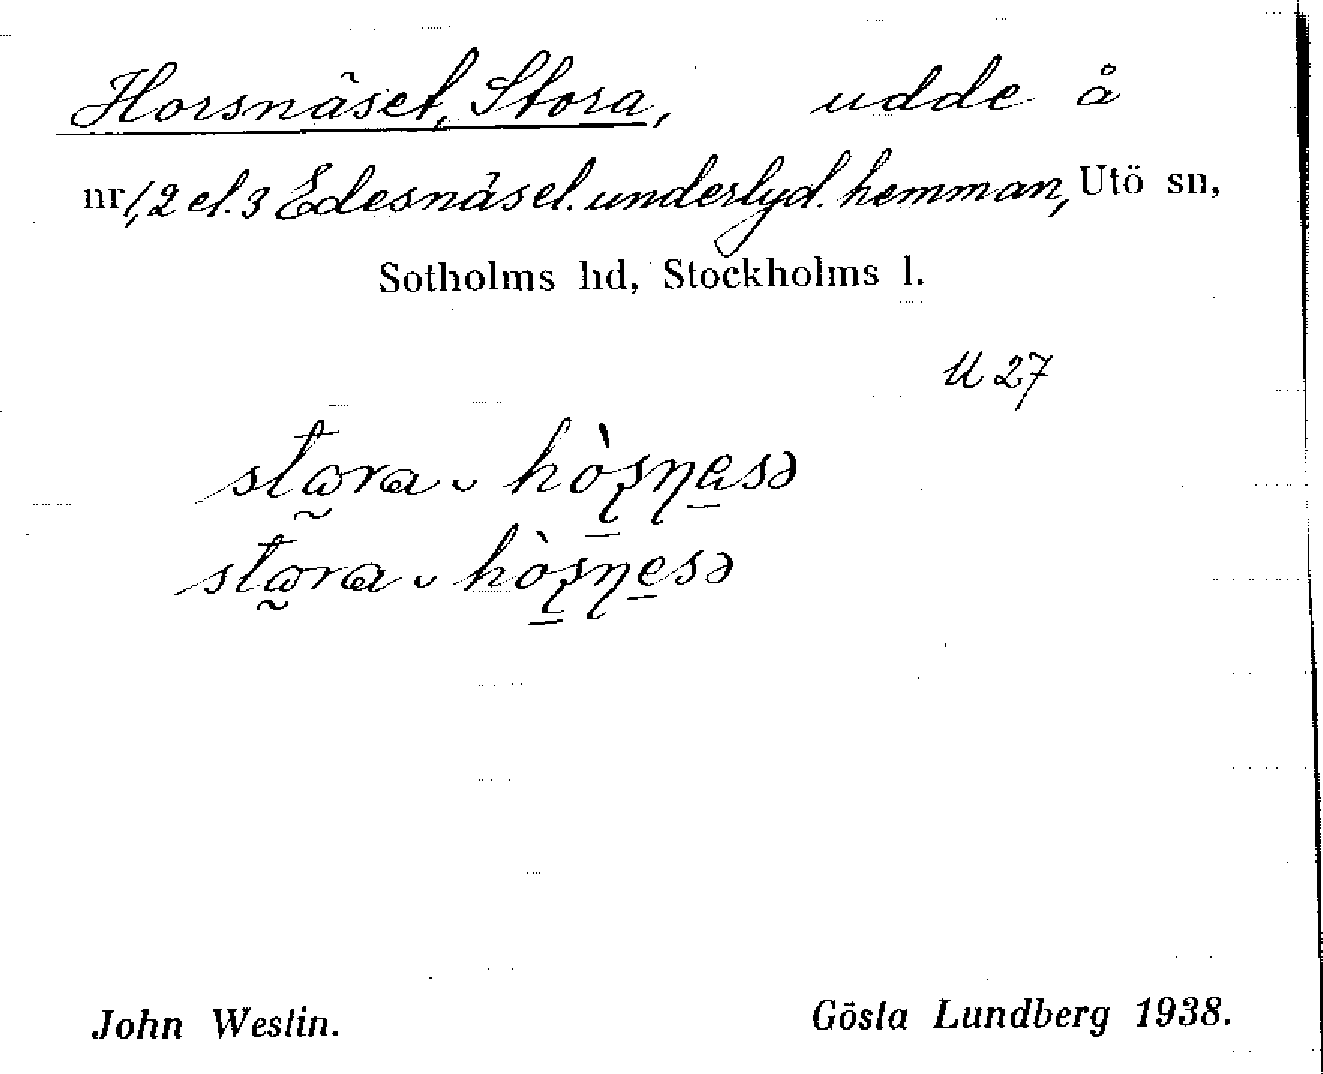 Horsnäset, Stora, udde å
nr 1, 2 el. 3 Edesnäs el. underlyd. hemman, Utö sn,
Sotholms hd, Stockholms l.
U 27
John Westin. Gösta Lundberg 1938.